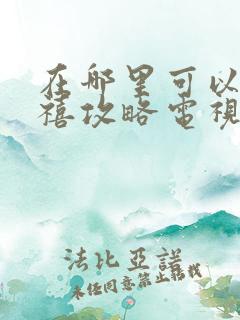 在哪里可以
禧攻略電視
法比亞諾
未任同意禁止轉載